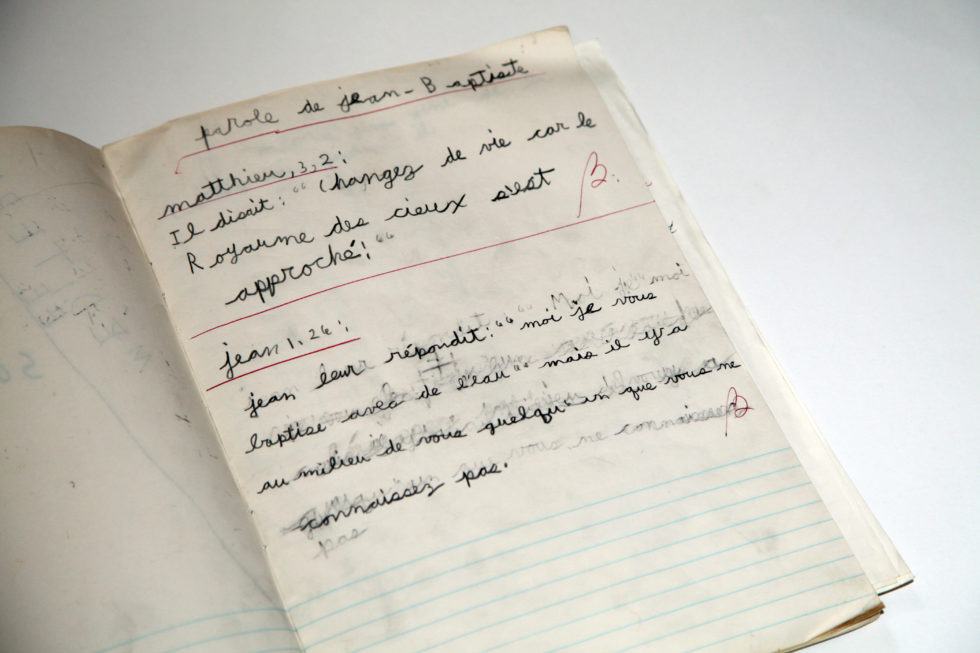 parole de jean-Baptiste
matthieu, 3, 2 :
Il disait : " Changez de vie car le
Royaume des cieux s'est
approché ! "
B.
jean 1, 26 :
jean leur répondit : " moi je vous
baptise avec de l'eau " mais il y a
au milieu de vous quelqu'un que vous ne
connaissez pas.
B
pas